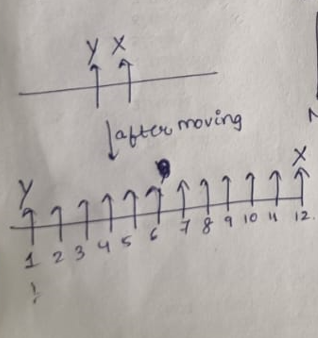 Y X
after moving
Y X
1 2 3 4 5 6 7 8 9 10 11 12.